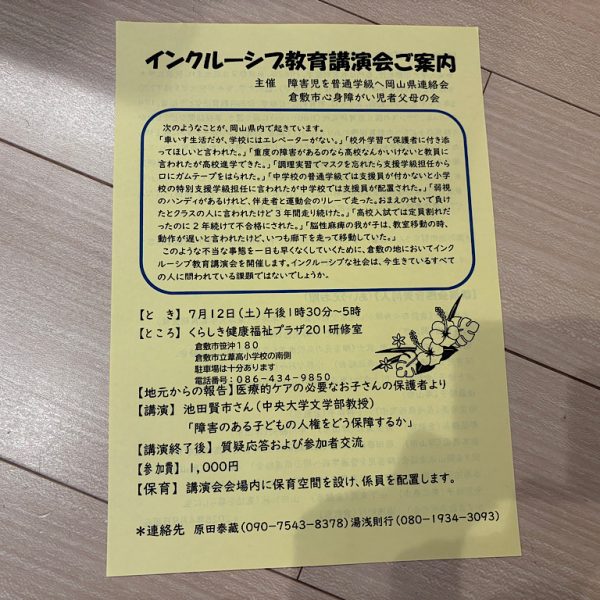 インクルーシブ教育講演会ご案内
主催 障害児を普通学級へ岡山県連絡会
倉敷市心身障がい児者父母の会
次のようなことが、岡山県内で起きています。
「車いす生活だが、学校にはエレベーターがない。」「校外学習で保護者に付き添
ってほしいと言われた。」「重度の障害があるのなら高校なんかいけないと教員に
言われたが高校進学できた。」「調理実習でマスクを忘れたら支援学級担任から
口にガムテープをはられた。」「中学校の普通学級では支援員が付かないと小学
校の特別支援学級担任に言われたが中学校では支援員が配置された。」「弱視
のハンディがあるけれど、伴走者と運動会のリレーで走った。おまえのせいで負け
たとクラスの人に言われたけど3年間走り続けた。」「高校入試では定員割れだ
ったのに2年続けて不合格にされた。」「脳性麻痺の我が子は、教室移動の時、
動作が遅いと言われたけど、いつも廊下を走って移動していた。」
このような不当な事態を一日も早くなくしていくために、倉敷の地においてインク
ルーシブ教育講演会を開催します。インクルーシブな社会は、今生きているすべて
の人に問われている課題ではないでしょうか。
【と き】7月12日(土)午後1時30分~5時
【ところ】くらしき健康福祉プラザ201研修室
倉敷市笹沖180
倉敷市立葦高小学校の南側
駐車場は十分あります
電話番号:086-434-9850
【地元からの報告】医療的ケアの必要なお子さんの保護者より
【講演】池田賢市さん(中央大学文学部教授)
「障害のある子どもの人権をどう保障するか」
【講演終了後】質疑応答および参加者交流
【参加費】1,000円
【保育】講演会会場内に保育空間を設け、係員を配置します。
*連絡先 原田泰蔵(090-7543-8378)湯浅則行(080-1934-3093)